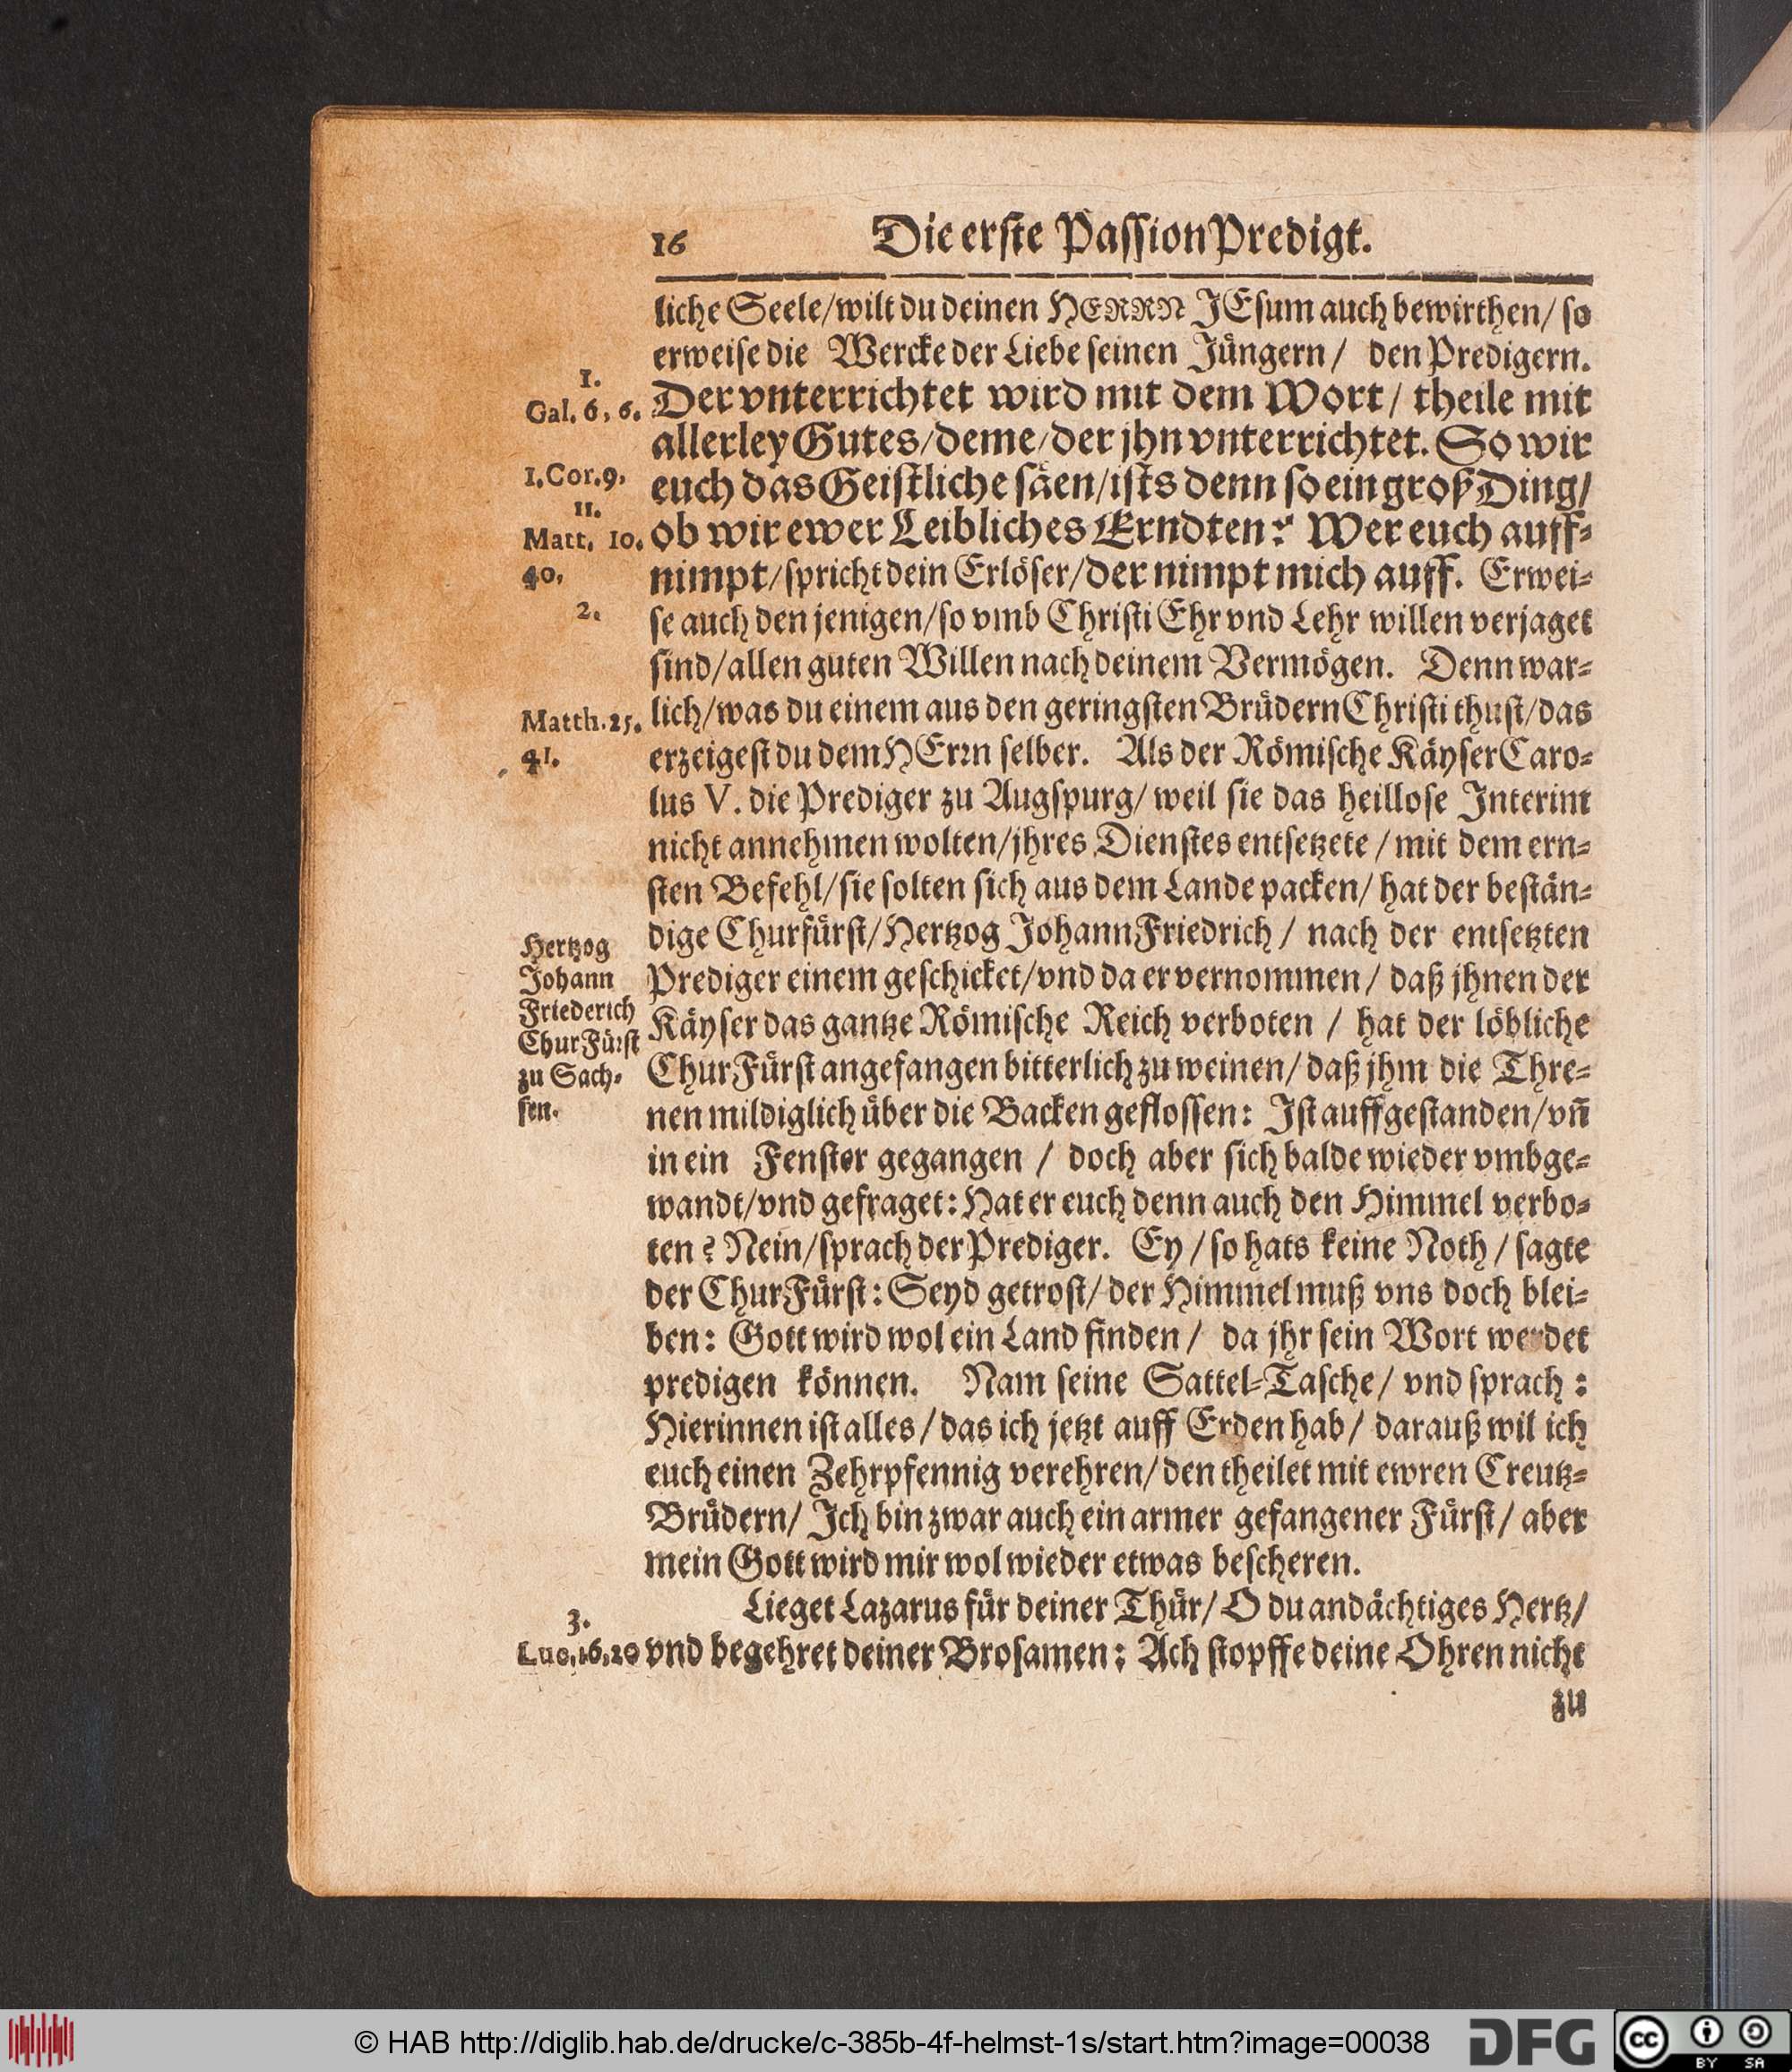 16 Die erste PassionPredigt.
liche Seele/wilt du deinen HERRN JEsum auch bewirthen/ so
erweise die Wercke der Liebe seinen Jüngern/ den Predigern.
1.
Gal. 6, 6. Der vnterrichtet wird mit dem Wort/ theile mit
allerley Gutes/deme/der jhn vnterrichtet. So wir
1.Cor.9. euch das Geistliche säen/ists denn so ein groß Ding/
11.
Matt. 10. ob wir ewer Leibliches Erndten? Wer euch auff-
40. nimpt/spricht dein Erlöser/der nimpt mich auff. Erwei-
2. se auch den jenigen/so vmb Christi Ehr vnd Lehr willen verjaget
sind/allen guten Willen nach deinem Vermögen. Denn war-
Matth.25. lich/was du einem aus den geringsten Brüdern Christi thust/das
41. erzeigest du dem HErꝛn selber. Als der Römische Käyser Caro-
lus V. die Prediger zu Augspurg/ weil sie das heillose Interim
nicht annehmen wolten/jhres Dienstes entsetzete / mit dem ern-
sten Befehl/sie solten sich aus dem Lande packen/ hat der bestän-
Hertzog dige Churfürst/Hertzog Johann Friedrich / nach der entsetzten
Johann Prediger einem geschicket/vnd da er vernommen / daß jhnen der
Friederich Käyser das gantze Römische Reich verboten / hat der löbliche
ChurFürst
zu Sach- ChurFürst angefangen bitterlich zu weinen/ daß jhm die Thre-
sen. nen mildiglich über die Backen geflossen: Ist auffgestanden/vñ
in ein Fenster gegangen / doch aber sich balde wieder vmbge-
wandt/vnd gefraget: Hat er euch denn auch den Himmel verbo-
ten? Nein/sprach der Prediger. Ey / so hats keine Noth / sagte
der ChurFürst: Seyd getrost/ der Himmel muß vns doch blei-
ben: Gott wird wol ein Land finden / da jhr sein Wort werdet
predigen können. Nam seine Sattel-Tasche/ vnd sprach:
Hierinnen ist alles / das ich jetzt auff Erden hab/ darauß wil ich
euch einen Zehrpfennig verehren/ den theilet mit ewren Creutz-
Brüdern/ Ich bin zwar auch ein armer gefangener Fürst/ aber
mein Gott wird mir wol wieder etwas bescheren.
3. Lieget Lazarus für deiner Thür/ O du andächtiges Hertz/
Luc.16,20 vnd begehret deiner Brosamen: Ach stopffe deine Ohren nicht
zu
© HAB http://diglib.hab.de/drucke/c-385b-4f-helmst-1s/start.htm?image=00038
DFG
cc BY SA